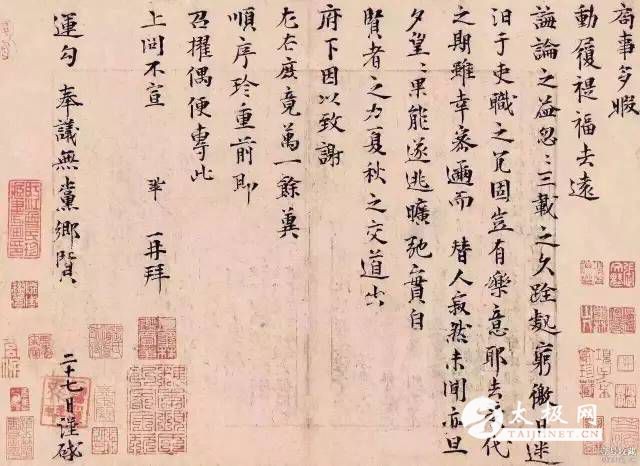 局事多暇
動履禔福去遠
誨論之益忽〻三載之久跧處窮徼日迷
汩于吏職之冗固豈有樂意耶去代
之期雖幸密邇而替人寂然未聞亦旦
夕望〻果能遂逃曠弛實自
賢者之力夏秋之交道出
府下因以致謝
左右庶竟萬一餘冀
順序珍重前即
召擢偶便專此
上問不宣 鞏 再拜
運勾 奉議無黨鄉賢 二十七日謹啟
太极网
TAIJI.NET.CN